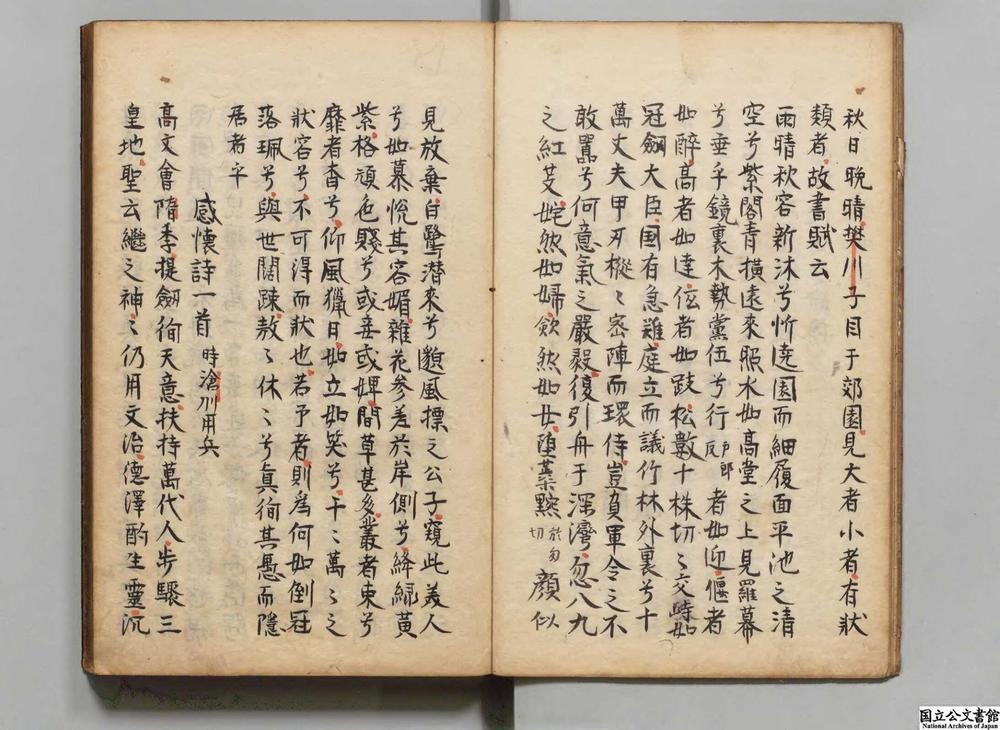 秋日晩晴樊川子目于郊園見大者小者有狀
類者故書賦云
雨晴秋容新沐兮忻遶園而細履面平池之清
空兮紫閣青橫遠來照水如高堂之上見羅幕
兮垂乎鏡裏木勢黨伍兮行者如迎偃者
如醉高者如達低者如跂松數十株切〻交峙如
冠劔大臣国有急難庭立而議竹林外裏兮十
萬丈夫甲刃樅〻密陣而環侍豈負軍令之不
敢嚚兮何意氣之嚴毅復引舟于深灣忽八九
之紅芰姹然如婦歛然如女堕蘂黦於勿切顔似
見放棄白鷺潜來兮邈風摽之公子窺此美人
兮如慕悅其容媚雜花參差於岸側兮絳緑黃
紫格頑色賤兮或妾或婢間草甚多叢者束兮
靡者杳兮仰風獵日如立如笑兮千〻萬〻之
狀容兮不可得而狀也若予者則爲何如倒冠
落珮兮與世闊踈敖〻休〻兮真徇其愚而隱
居者乎
感懷詩一首 時滄州用兵
高文會隋季提劔徇天意扶持萬代人步驟三
皇地聖云繼之神〻仍用文治德澤酌生靈沉
国立公文書館
National Archives of Japan